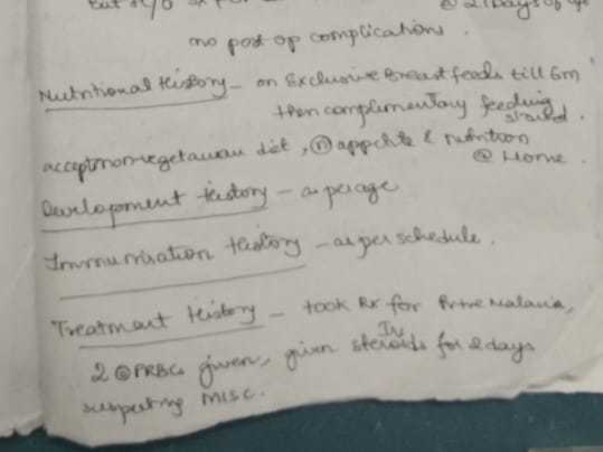 but
@ 21 Days of
no post op complications.
Nutritional History - on Exclusive Breast feeds till 6m
then complimentary feeding
started.
accept non vegetarian diet, ⓝ appetite & nutrition
@ Home.
Development History - as per age
Immunisation History - as per schedule.
Treatment History - took Rx for Malaria,
IV
2 @ PRBCs given, given steroids for 2 days
suspecting MISC.